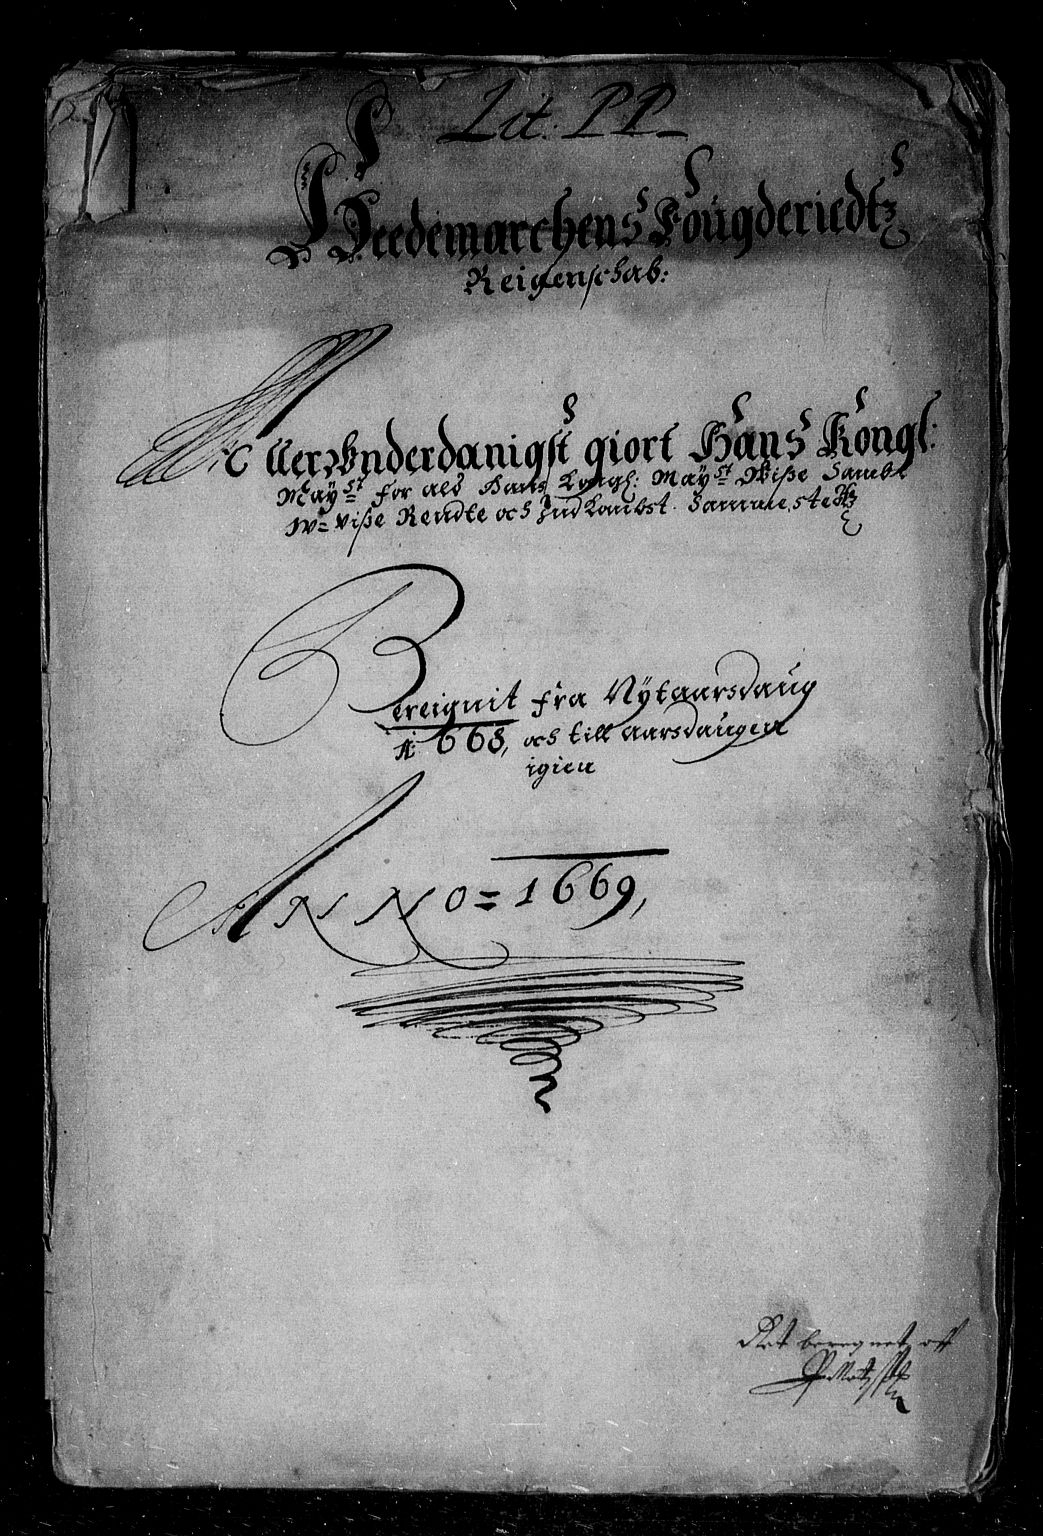 Lit: PP
Heedemarchens Fougderiedtz
Reigenschab:
Allervnderdanigst giort Hans Kongl:
Mayst for als Hans Kongl: Mayst Wiße Sambt
W=viße Rendte och Indkombst Sammestedtz
Bereignit fra Nytaarsdaug
Ao: 668, och till aarsdaugen
igien
ANNO = 1669,
Ret beregnet aff